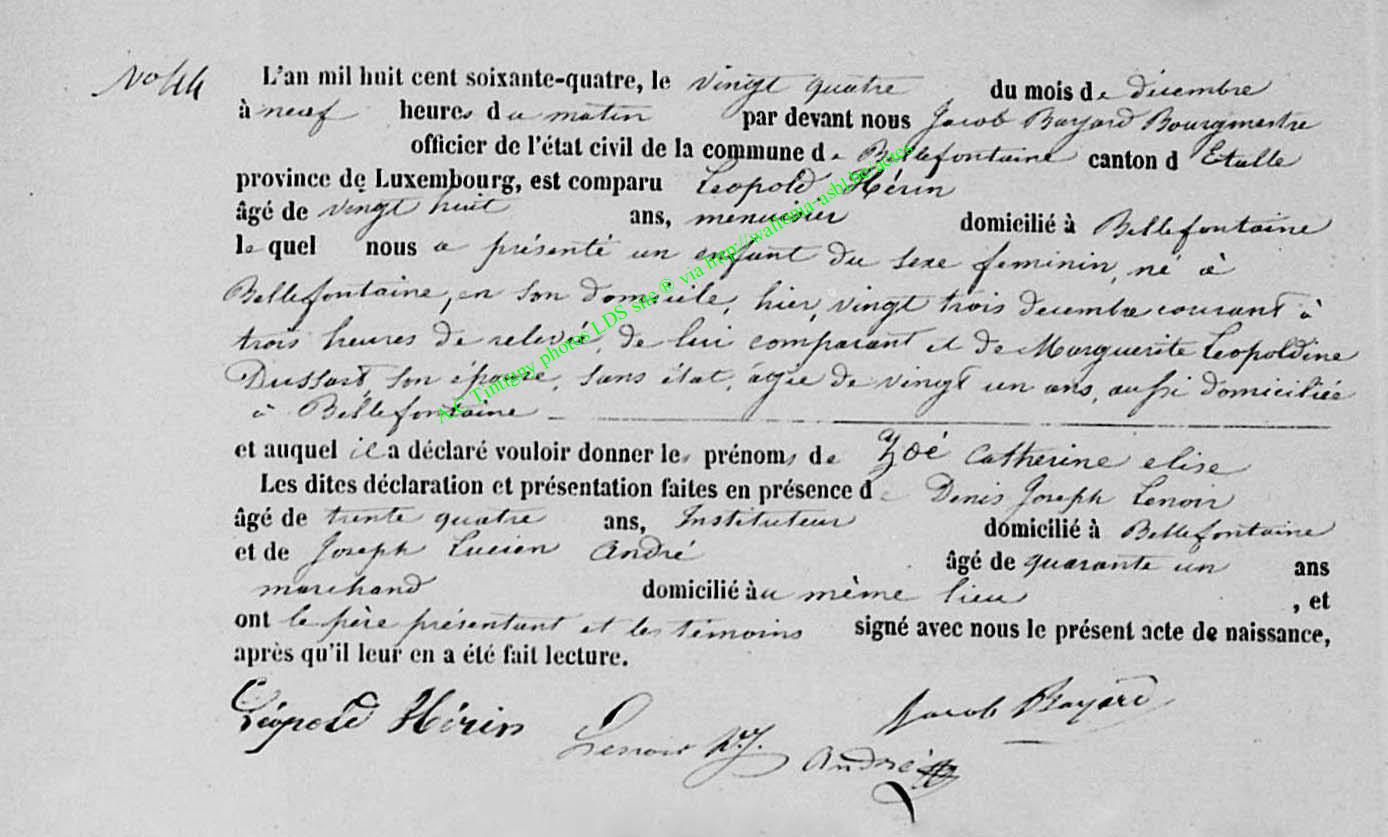 No 44
L'an mil huit cent soixante-quatre, le vingt quatre du mois de décembre
à neuf heures du matin par devant nous Jacob Bayard Bourgmestre
officier de l'état civil de la commune de Bellefontaine canton d Etalle
province de Luxembourg, est comparu Léopold Hérin
âgé de vingt huit ans, menuisier domicilié à Bellefontaine
le quel nous a présenté un enfant du sexe feminin, né à
Bellefontaine, en son domicile, hier, vingt trois decembre courant à
trois heures de relevée, de lui comparant et de Marguerite Léopoldine
Dussart, son épouse, sans état, agée de vingt un ans, aussi domiciliée
à Bellefontaine
et auquel il a déclaré vouloir donner les prénoms de Zoé Catherine elise
Les dites déclaration et présentation faites en présence de Denis Joseph Lenoir
âgé de trente quatre ans, Instituteur domicilié à Bellefontaine
et de Joseph Lucien André âgé de quarante un ans
marchand domicilié au même lieu , et
ont le père présentant et les témoins signé avec nous le présent acte de naissance,
après qu'il leur en a été fait lecture.
Léopold Hérin Lenoir André Jacob Bayard
A.C. Tintigny photos LDS site ® via http://wallonia-asbl.be/actes